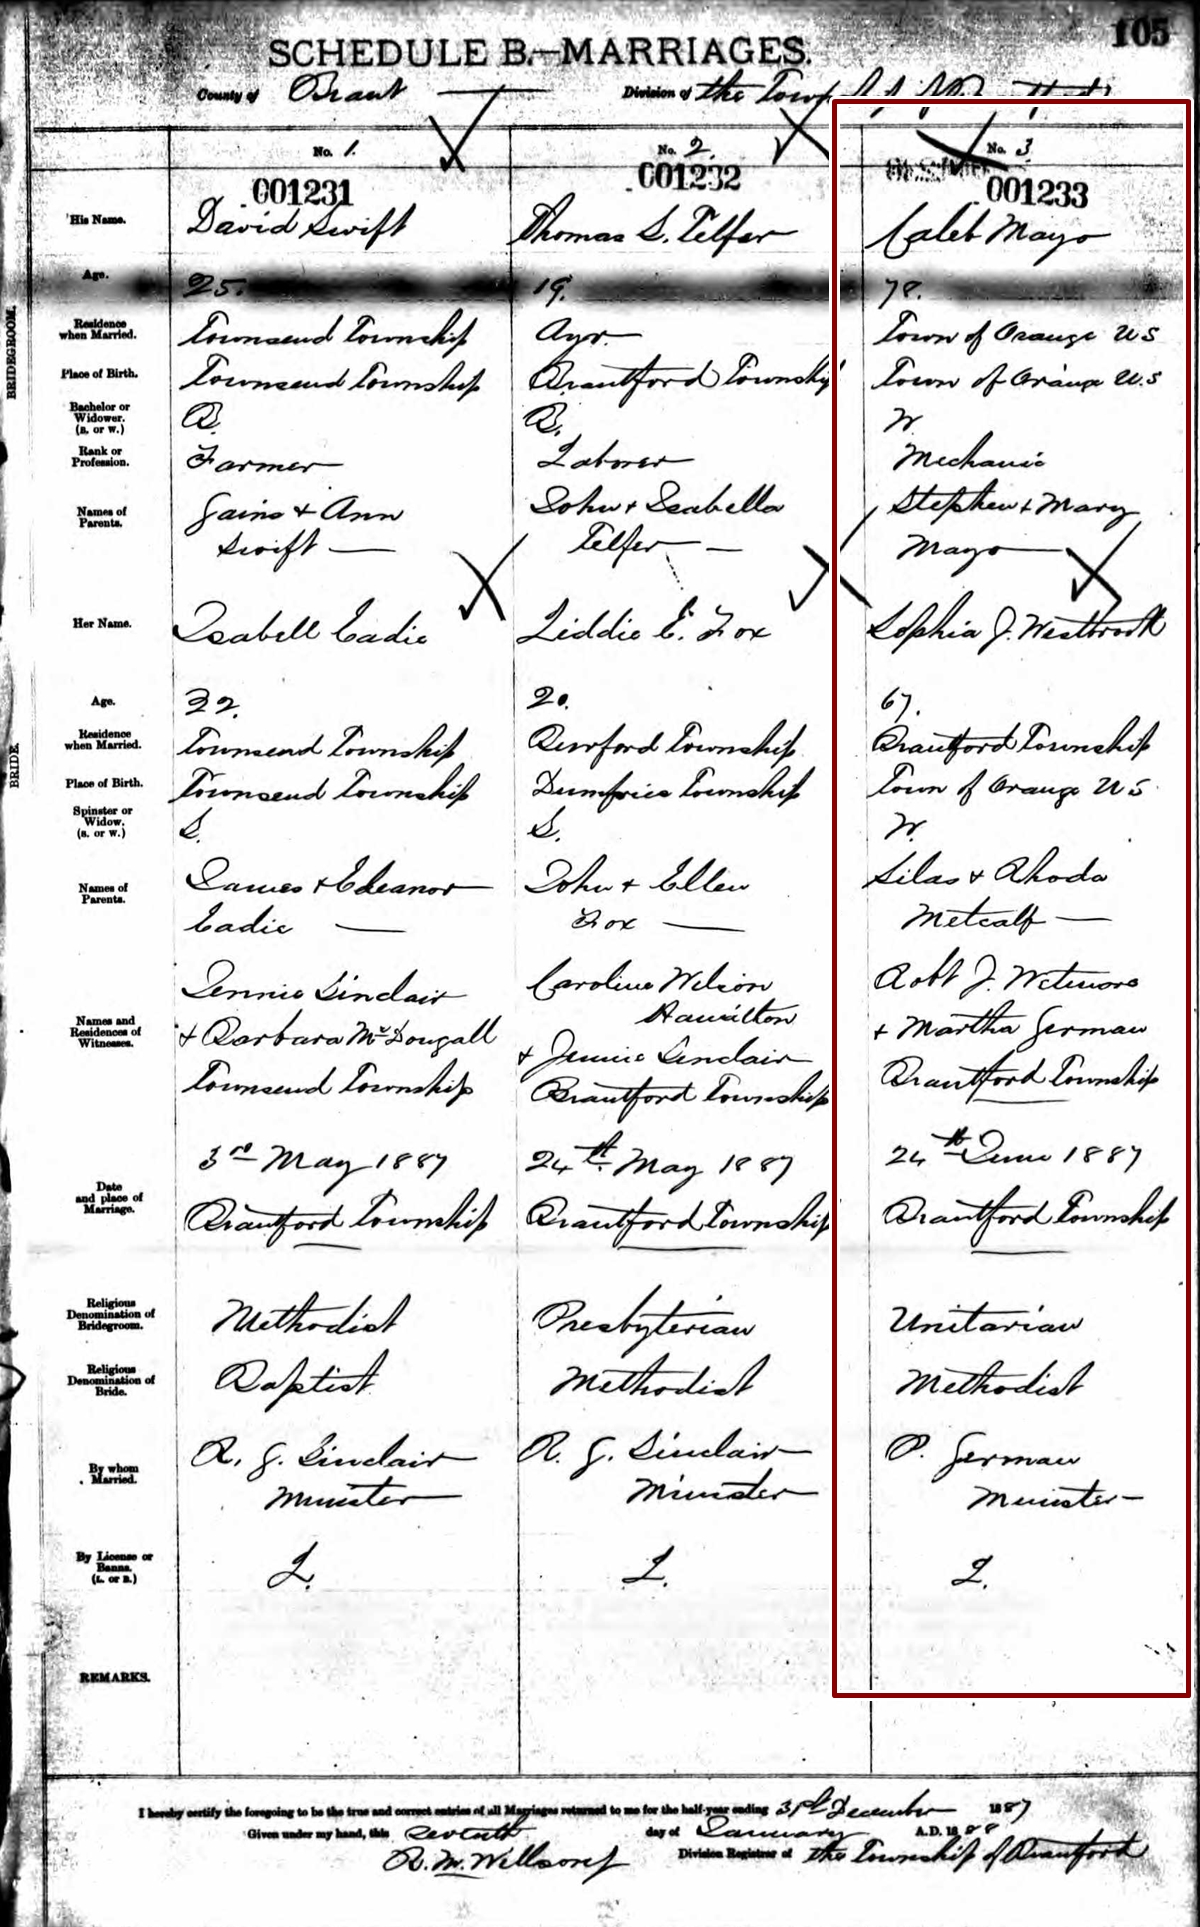 105
SCHEDULE B.—MARRIAGES.
County of Brant Division of the Town
No. 1. No. 2. No. 3.
001231 001232 001233
BRIDEGROOM.
His Name. David Swift Thomas S. Telfer Caleb Mayo
Age. 25. 19. 78.
Residence when Married. Townsend Township Ayr Town of Orange US
Place of Birth. Townsend Township Brantford Township Town of Orange U.S
Bachelor or Widower. (B. or W.) B. B. W.
Rank or Profession. Farmer Laborer Mechanic
Names of Parents. Gains + Ann John + Isabella Stephen + Mary
Swift Telfer Mayo
BRIDE.
Her Name. Isabell Eadie Liddie E. Fox Sophia J. Westbrook
Age. 32. 20. 67.
Residence when Married. Townsend Township Burford Township Brantford Township
Place of Birth. Townsend Township Dumfries Township Town of Orange US
Spinster or Widow. (S. or W.) S. S. W.
Names of Parents. James + Eleanor John + Ellen Silas + Rhoda
Eadie Fox Metcalf
Names and Residences of Witnesses. Jennie Sinclair Caroline Wilson Robt J. Wetmore
+ Barbara McDougall Hamilton + Martha German
Townsend Township + Jennie Sinclair Brantford Township
Brantford Township
Date and place of Marriage. 3rd May 1887 24th May 1887 24th June 1887
Brantford Township Brantford Township Brantford Township
Religious Denomination of Bridegroom. Methodist Presbyterian Unitarian
Religious Denomination of Bride. Baptist Methodist Methodist
By whom Married. R. G. Sinclair R. G. Sinclair P. German
Minister Minister Minister
By License or Banns. (L. or B.) L. L. L.
REMARKS.
I hereby certify the foregoing to be the true and correct entries of all Marriages returned to me for the half-year ending 31st December 1887
Given under my hand, this Seventh day of January A.D. 1888
R. M. Willson Division Registrar of the Township of Brantford